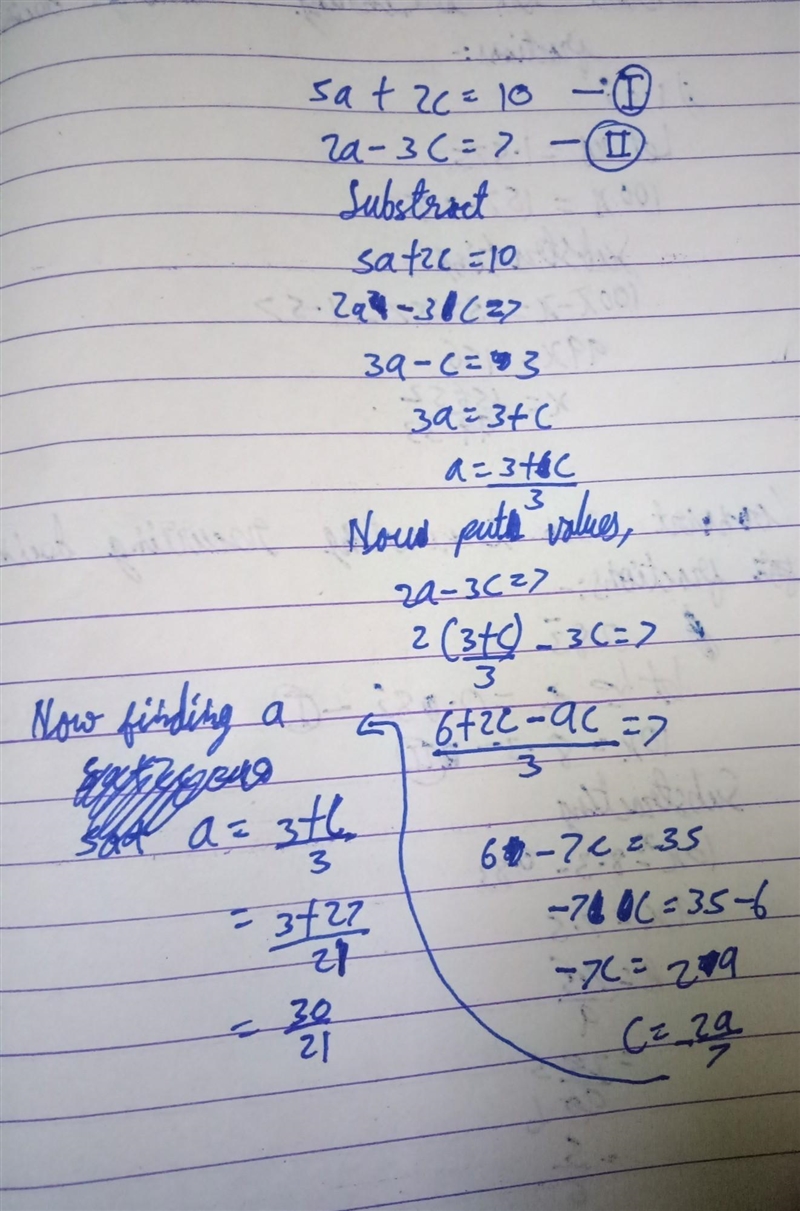 5a + 2c = 10 — I
2a - 3c = 7. — II
Substract
5a+2c =10
2a - 3c=7
3a - c = 3
3a = 3+c
a = 3+c/3
Now put values,
2a - 3c=7
2 (3+c/3) - 3c = 7
6+2c-9c/3 = 7
6 - 7c = 35
-7c = 35-6
-7c = 29
c = -29/7
Now finding a
a = 3+c/3
= 3+27/21
= 30/21